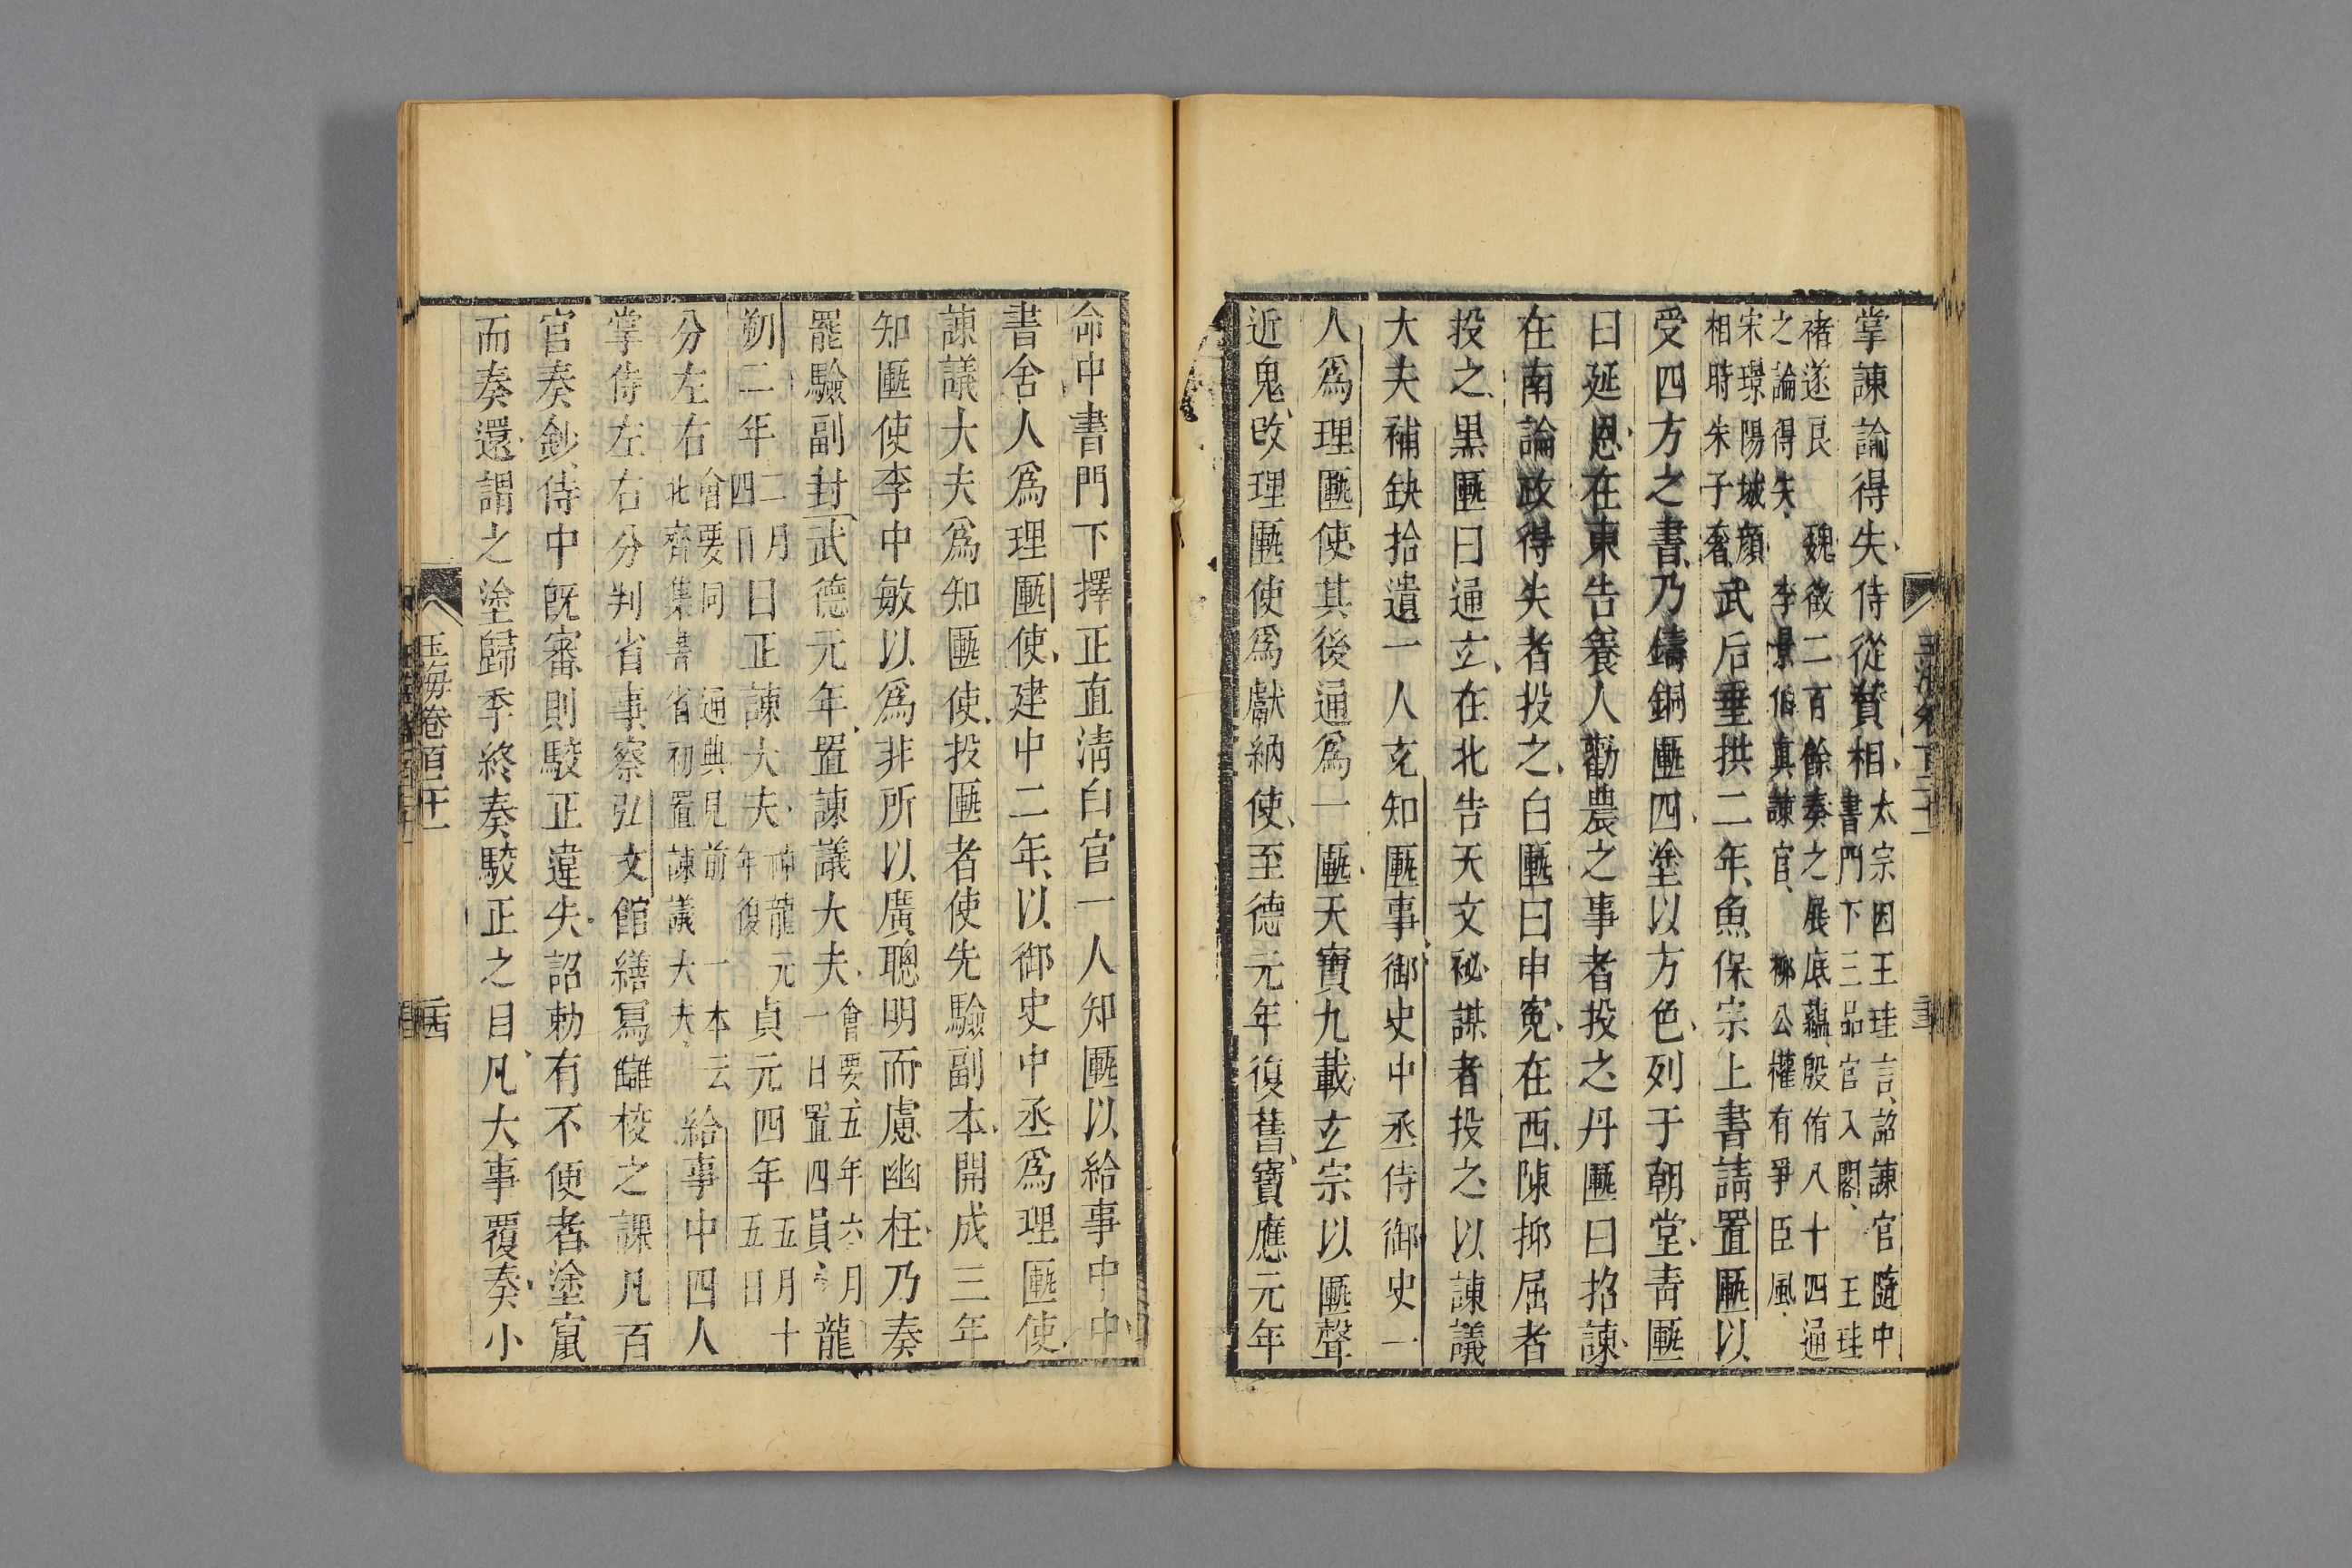 掌諫諭得失侍從贊相太宗因王珪言詔諫官隨中書門下三品官入閣王珪
褚遂良魏徵二百餘奏之展底蘊殷侑八十四通之論得失李景伯真諫官柳公權有爭臣風
宋璟陽城顏相時朱子奢武后垂拱二年魚保宗上書請置匭以
受四方之書乃鑄銅匭四塗以方色列于朝堂青匭
曰延恩在東告養人勸農之事者投之丹匭曰招諫
在南論政得失者投之白匭曰申寃在西陳抑屈者
投之黑匭曰通玄在北告天文祕謀者投之以諫議
大夫補缺拾遺一人充知匭事御史中丞侍御史一
人爲理匭使其後通爲一匭天寶九載玄宗以匭聲
近鬼改理匭使爲獻納使至德元年復舊寶應元年
命中書門下擇正直清白官一人知匭以給事中中
書舍人爲理匭使建中二年以御史中丞爲理匭使
諫議大夫爲知匭使投匭者使先驗副本開成三年
知匭使李中敏以爲非所以廣聰明而慮幽枉乃奏
罷驗副封武德元年置諫議大夫會要五年六月一日置四員龍
朔二年二月四日曰正諫大夫神龍元年復貞元四年五月十五日
分左右會要同通典見前一本云北齊集書省初置諫議大夫給事中四人
掌侍左右分判省事察弘文館繕寫讎校之課凡百
官奏鈔侍中既審則駮正違失詔勅有不便者塗竄
而奏還謂之塗歸季終奏駮正之目凡大事覆奏小
玉海卷百二十一